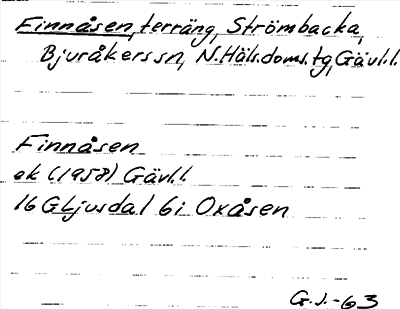 Finnåsen, terräng, Strömbacka,
Bjuråkers sn, N.Häls.doms.tg, Gävl.l.
Finnåsen
ek (1958) Gävl.l.
16 G Ljusdal 6i Oxåsen
G.J.-63